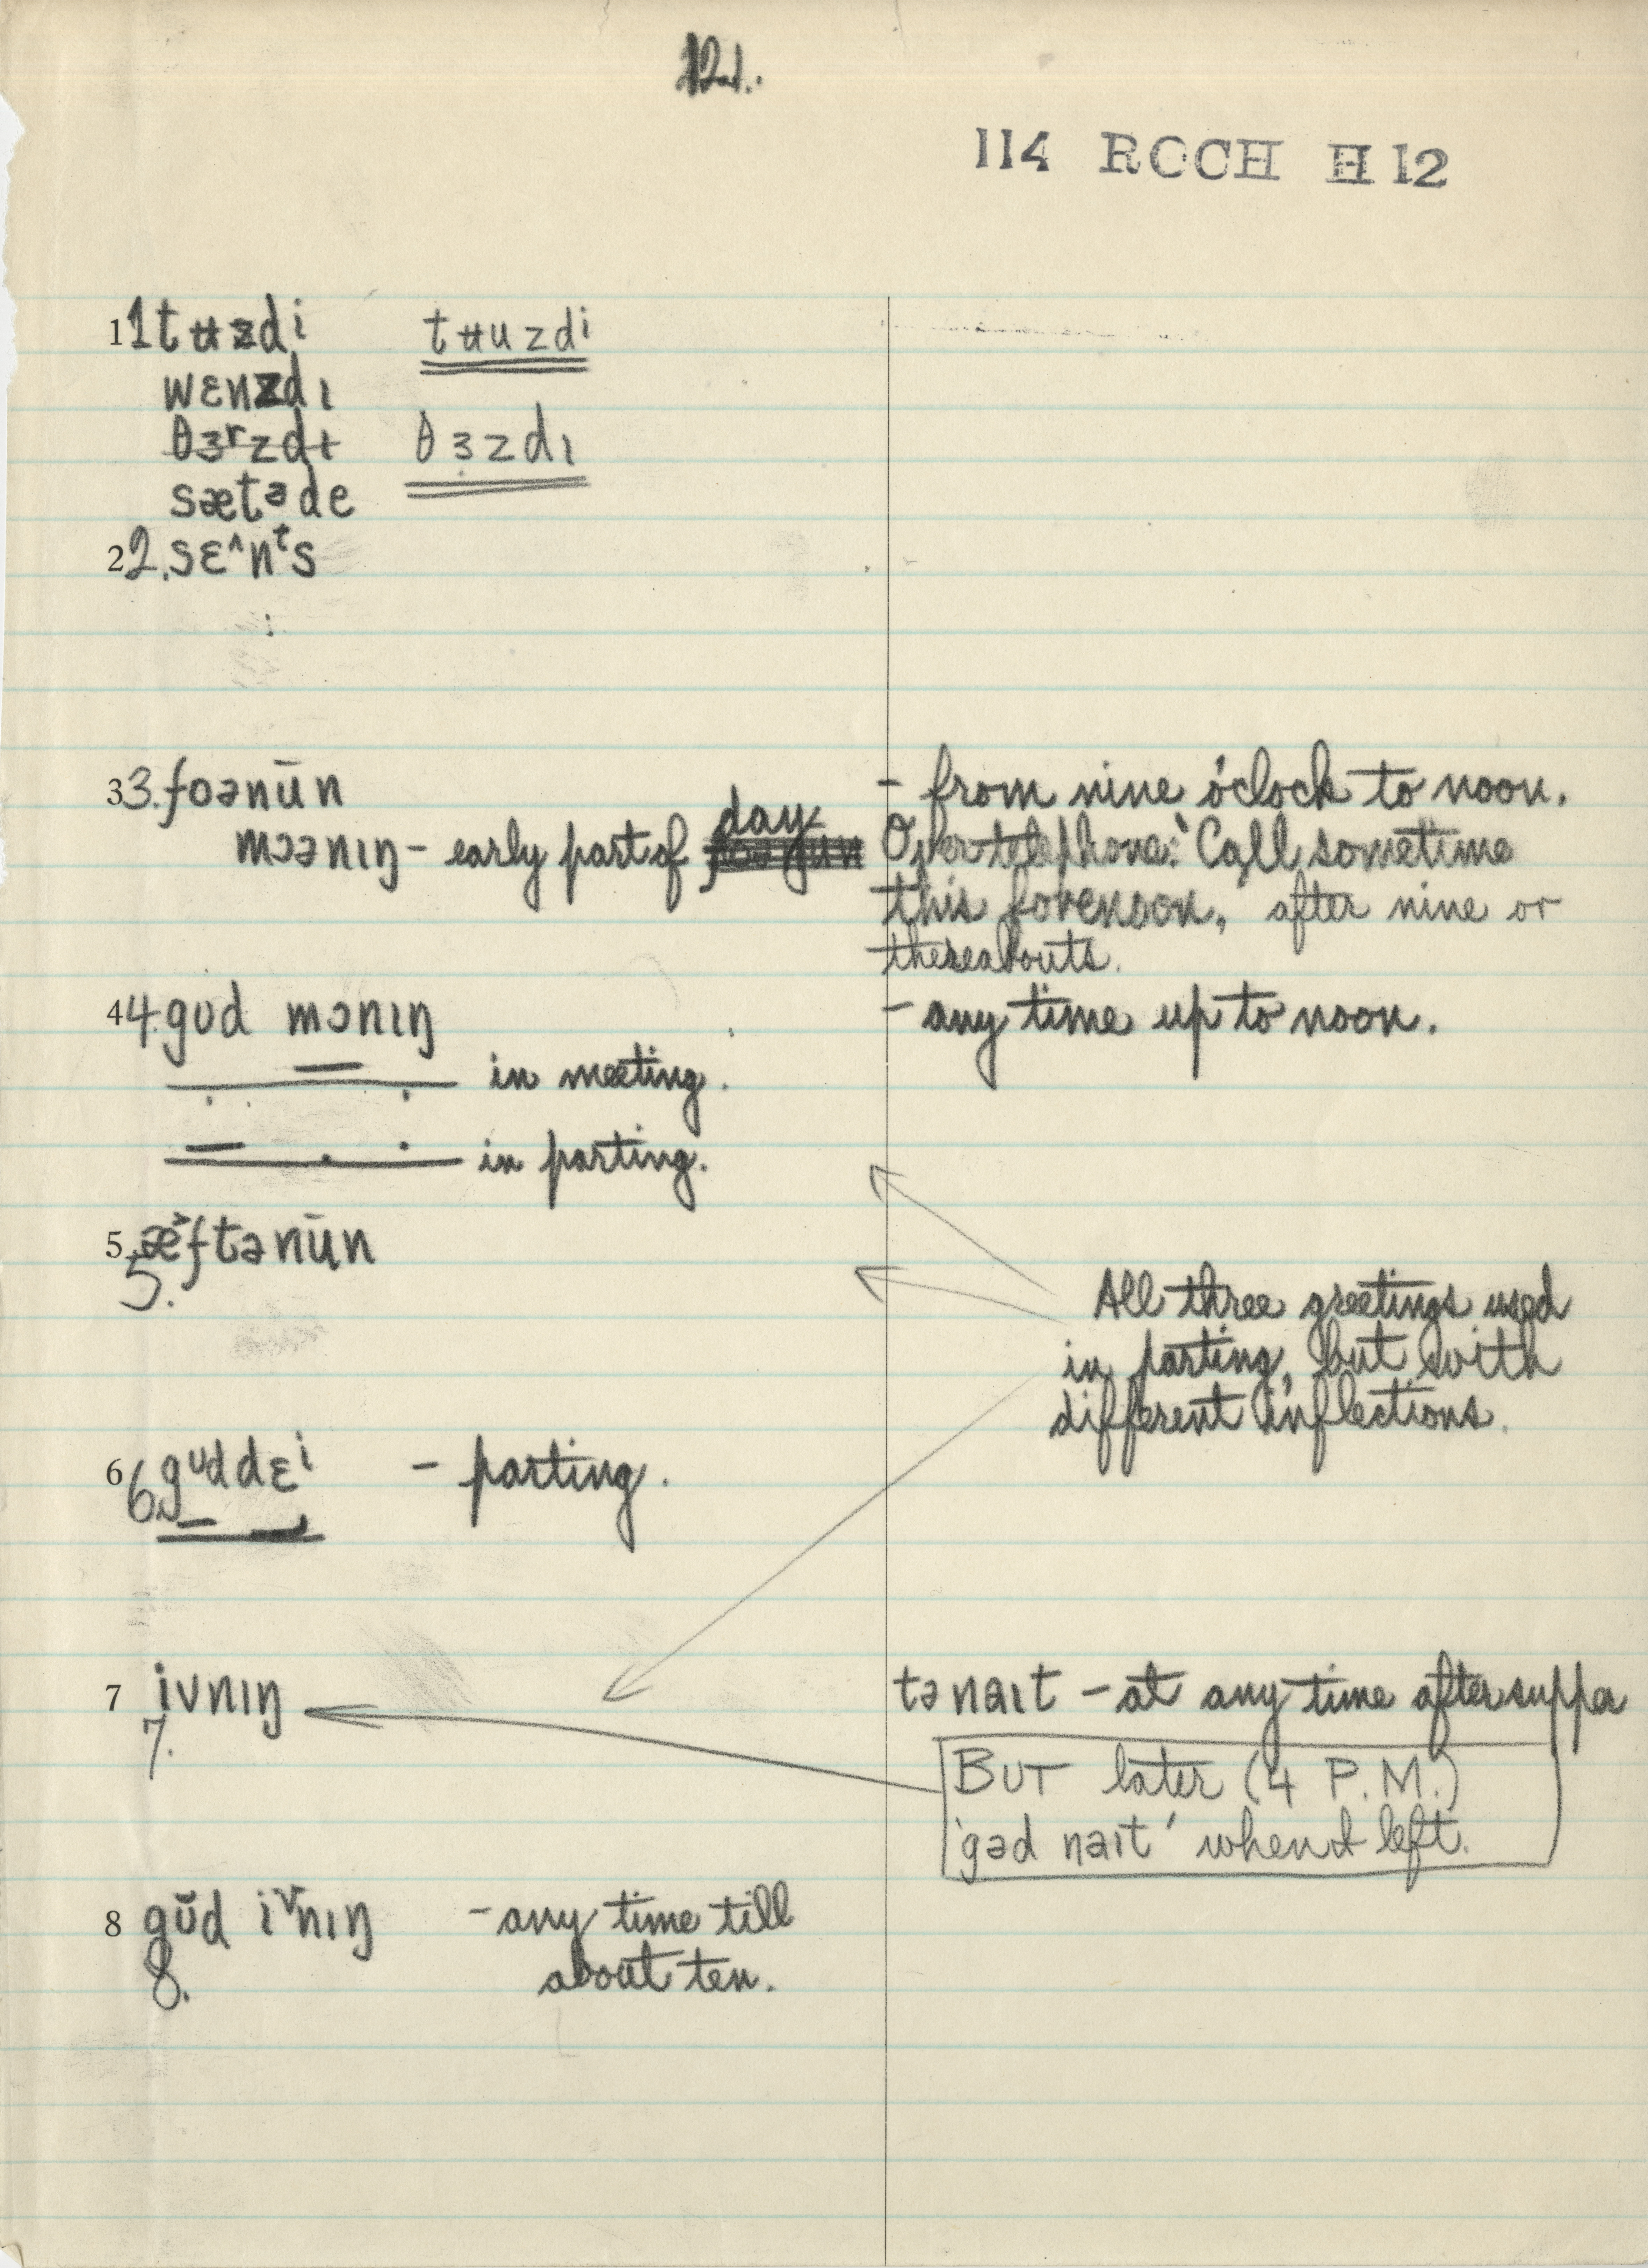 121.
114 ROCH H 12
1 1 tʉzdi tʉuzdi
wɛnzdɪ
θɜrzdɪ θɜzdɪ
sætəde
2 2. sɛ^nᵗs
3 3. foənūn - from nine o'clock to noon.
mɔənɪŋ - early part of day Over telephone: 'Call sometime
this forenoon, after nine or
thereabouts.
4 4. gʊd mɔnɪŋ - any time up to noon.
in meeting.
in parting.
5. æ˃ftənūn
5.
All three greetings used
in parting, but with
different inflections.
6 6. gᴜddɛⁱ - parting.
7 ivnɪŋ tənaɪt - at any time after supper
7.
BUT later (4 P.M.)
'gəd naɪt' when I left.
8 gŭd iᵛnɪŋ - any time till
8. about ten.